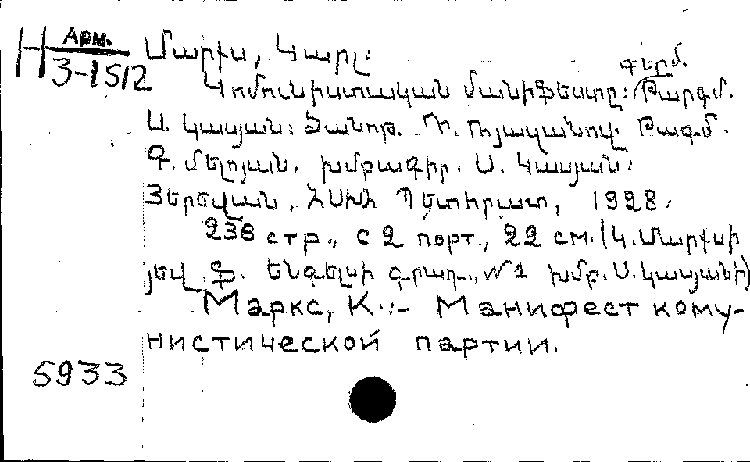 H Арм. 3-1512
Մարքս, Կարլ:
Կոմունիստական մանիֆեստը: Գերմ. Թարգմ.
Ա. Կասյան: Ծանոթ. Դ. Ռյազանով. Թարգմ.
Գ. Մելոյան. խմբագիր. Ս. Կասյան:
Յերեվան, ՀՍԽՀ Պետհրատ, 1928.
236 стр., с 2 порт., 22 см. (Կ. Մարքսի
յեվ Ֆ. Ենգելսի գրադ., № 1 խմբ. Ս. Կասյանի)
Маркс, К.:- Манифест кому-
нистической партии.
5933